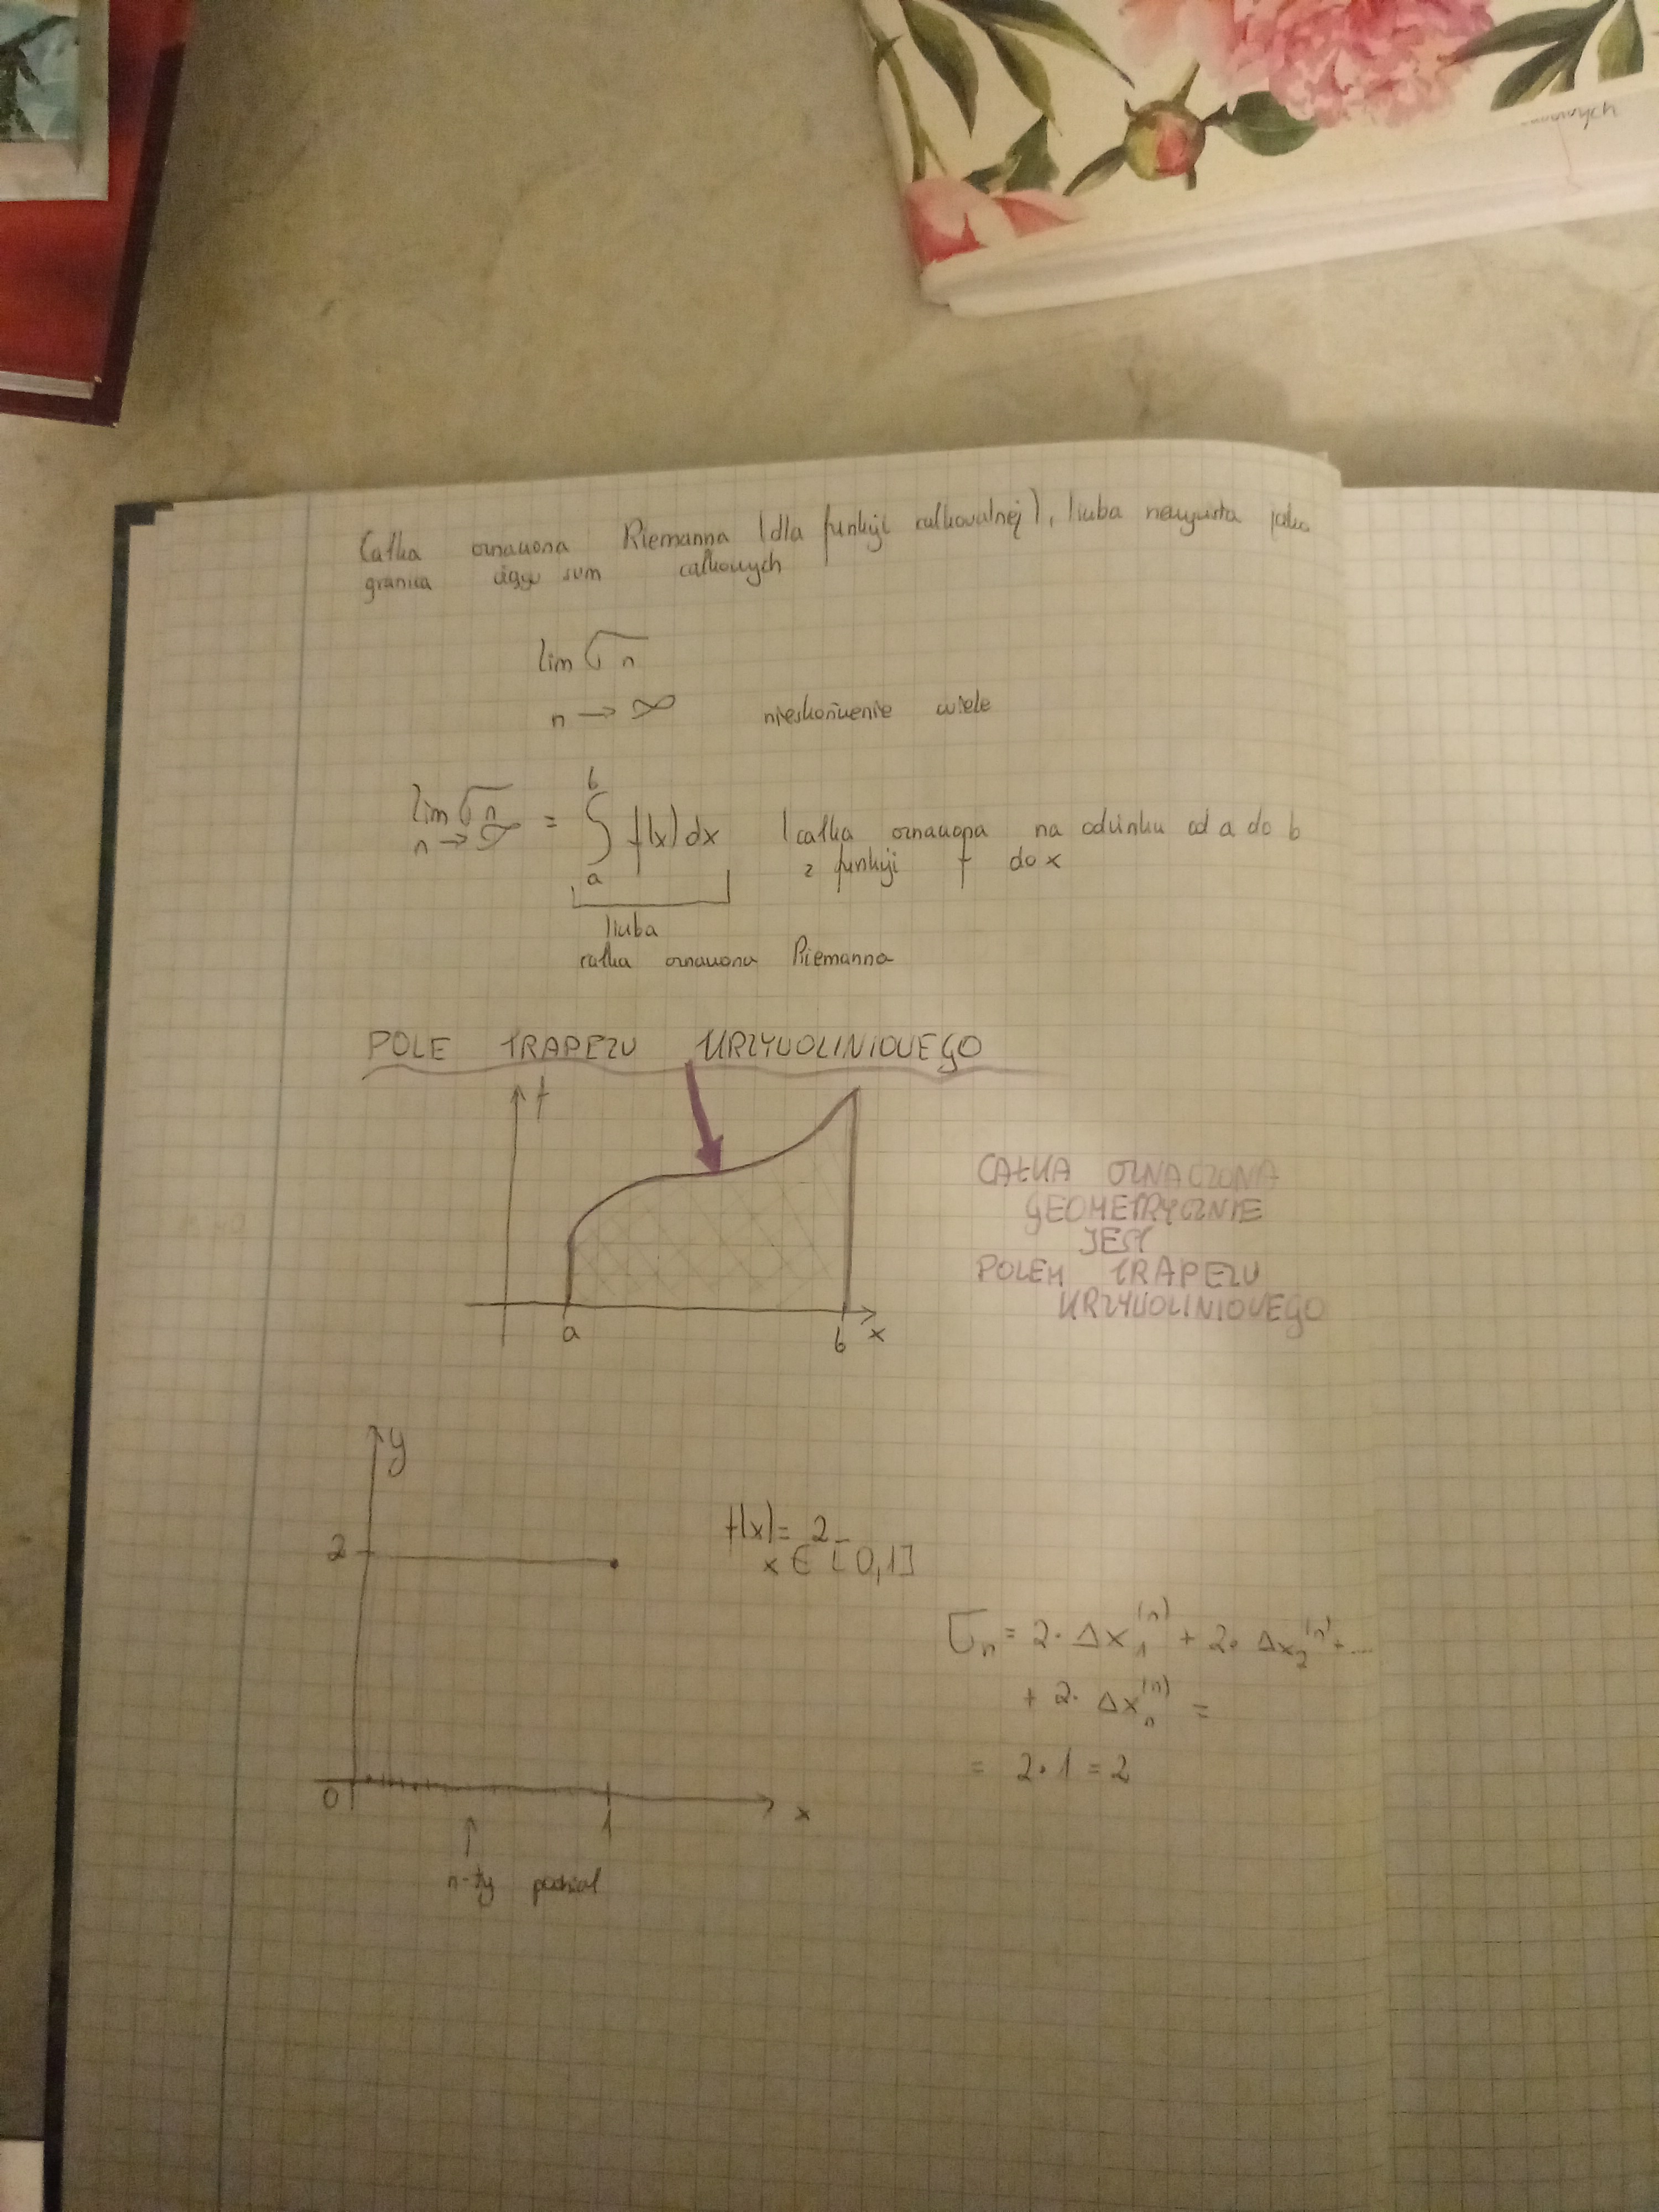 całkowych
Całka oznaczona Riemanna (dla funkcji całkowalnej), liczba rzeczywista jako
granica ciągu sum całkowych
lim σn
n → ∞ nieskończenie wiele
b
lim σn = ∫ f(x) dx (całka oznaczona na odcinku od a do b
n → ∞
a z funkcji f do x
liczba
całka oznaczona Riemanna
POLE TRAPEZU KRZYWOLINIOWEGO
f
CAŁKA OZNACZONA
GEOMETRYCZNIE
JEST
POLEM TRAPEZU
KRZYWOLINIOWEGO
a b x
y
f(x) = 2
2 x ∈ [0,1]
σn = 2· Δx₁⁽ⁿ⁾ + 2· Δx₂⁽ⁿ⁾ + ...
+ 2· Δxₙ⁽ⁿ⁾ =
= 2·1 = 2
0 1 x
n-ty podział